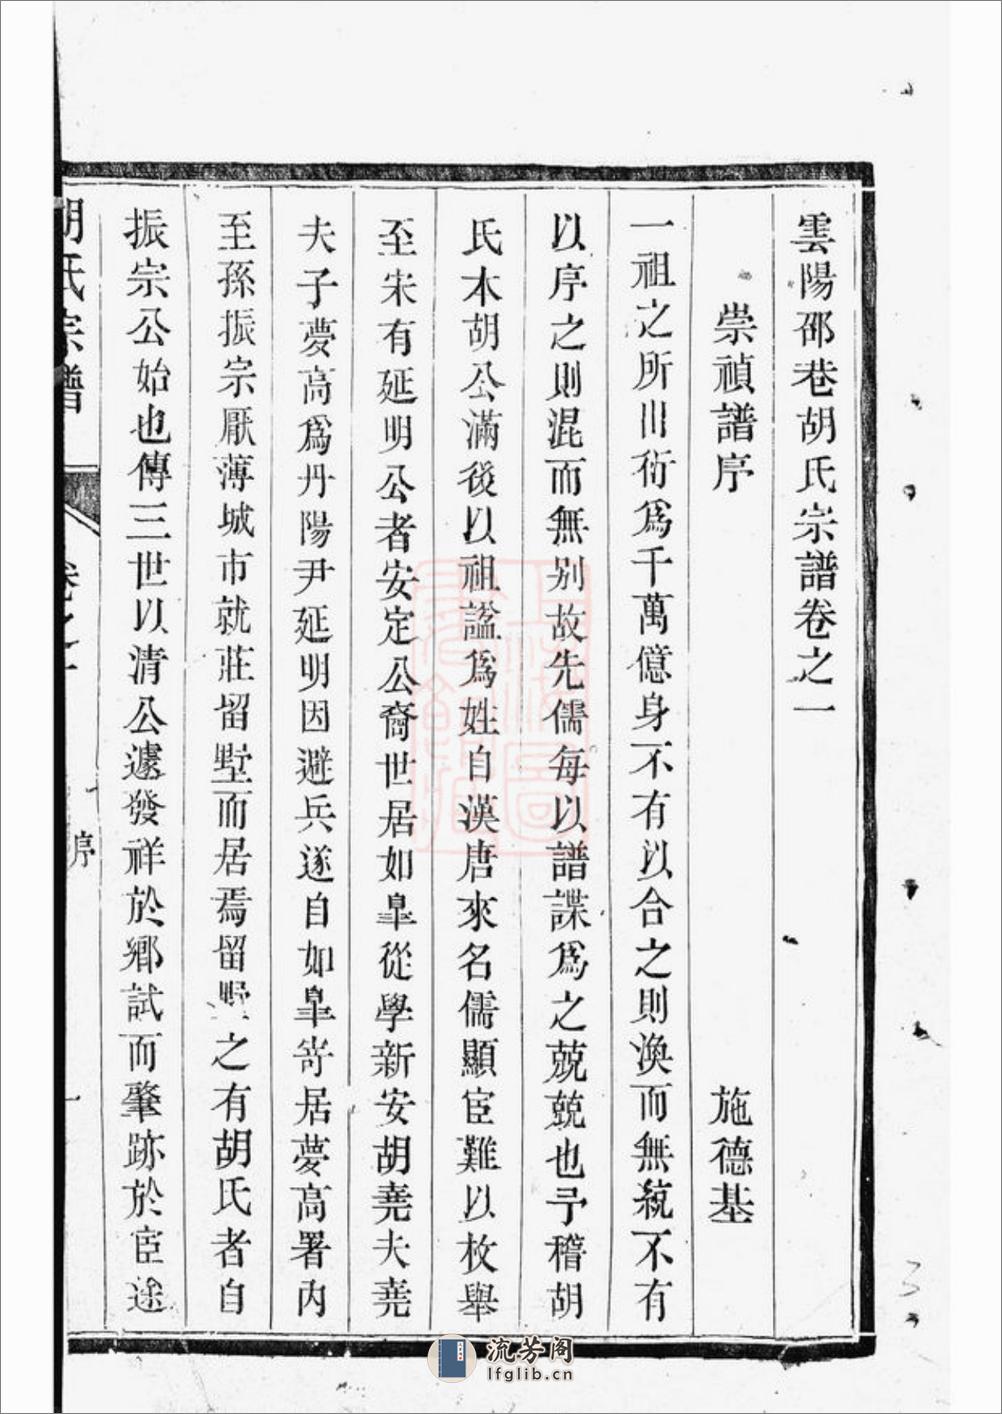 雲陽邵巷胡氏宗譜卷之一
崇禎譜序
施德基
一祖之所川衍爲千萬億身不有以合之則渙而無統不有
以序之則混而無别故先儒每以譜諜爲之兢兢也予稽胡
氏本胡公滿後以祖謚爲姓自漢唐來名儒顯宦難以枚舉
至宋有延明公者安定公裔世居如臯從學新安胡堯夫堯
夫子夢高爲丹陽尹延明因避兵遂自如臯寄居夢高署内
至孫振宗厭薄城市就莊留墅而居焉留墅之有胡氏者自
振宗公始也傳三世以清公遽發祥於鄉試而肇跡於宦途
胡氏宗譜
卷之一
序
一
流芳阁
lfglib.cn